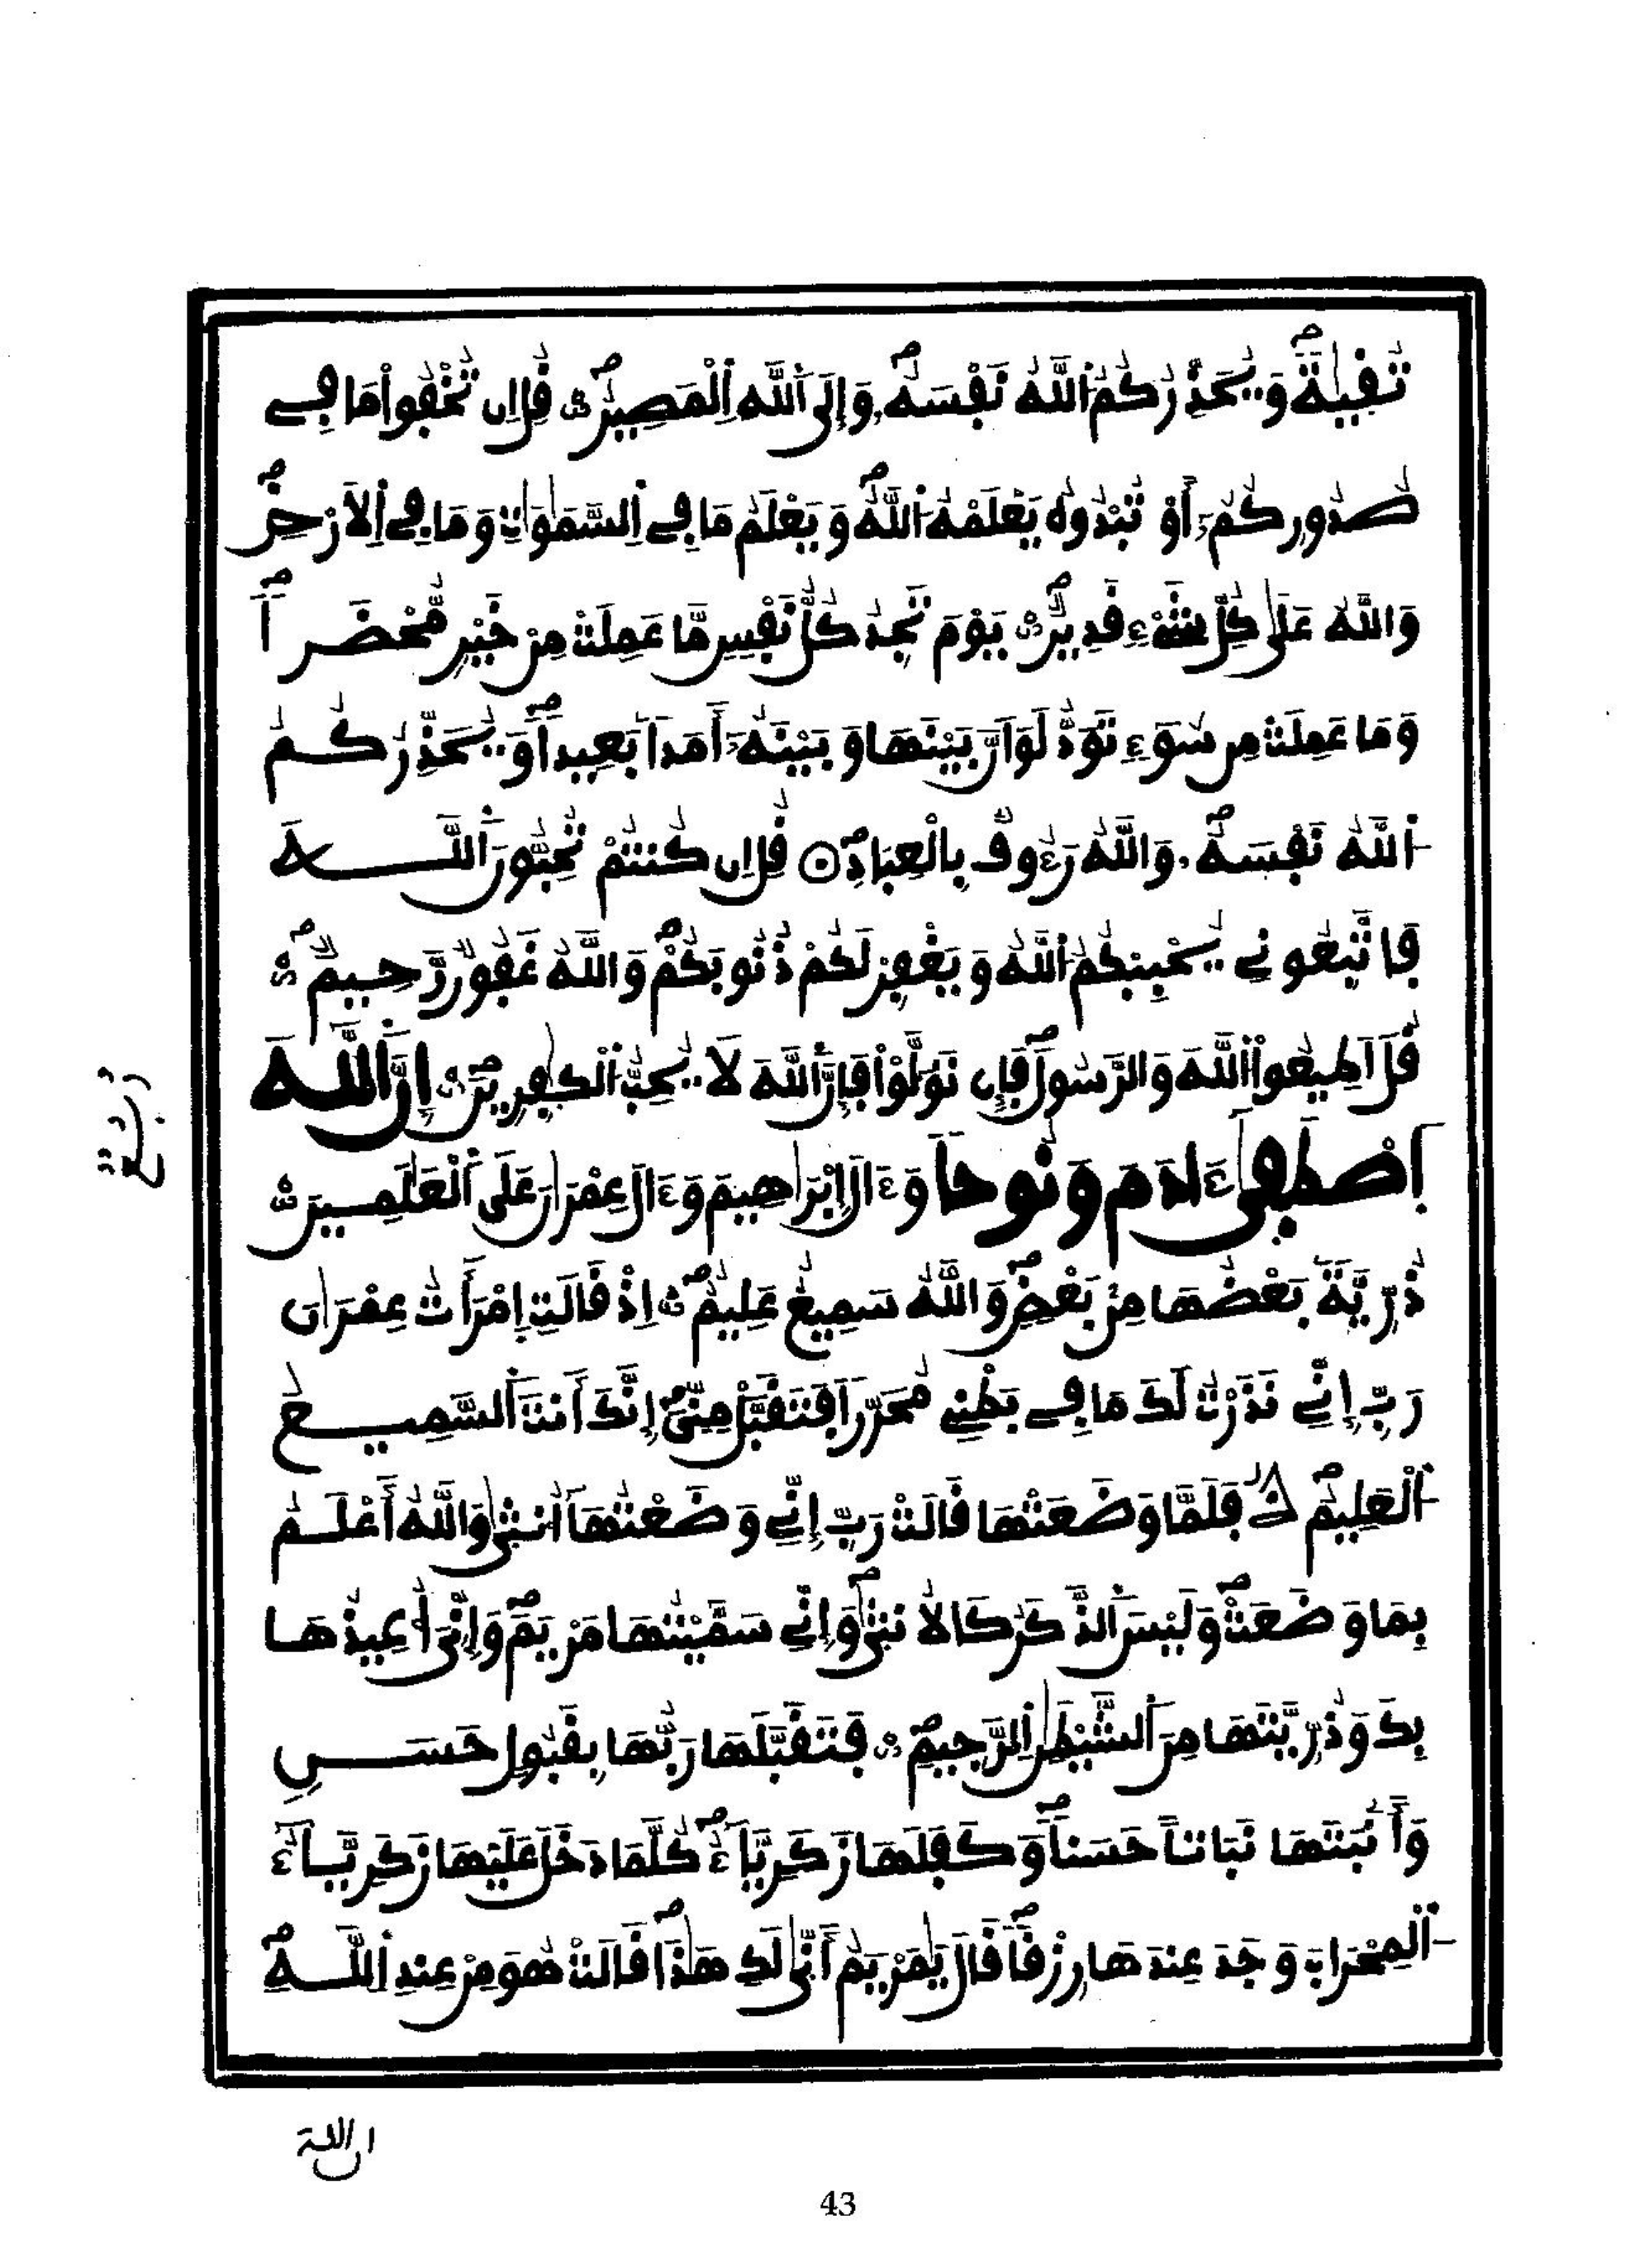 تُقِيٰةً وَيُحَذِّرُكُمُ اللَّهُ نَفْسَهُ وَإِلَى اللَّهِ الْمَصِيرُ قُلِ ان تُخْفُواْ مَا فِے
صُدُورِكُمُ أَوْ تُبْدُوهُ يَعْلَمْهُ اللَّهُ وَيَعْلَمُ مَا فِے السَّمَٰوَٰتِ وَمَا فِے الَارْضِ
وَاللَّهُ عَلَىٰ كُلِّ شَےْءٍ قَدِيرٌ يَوْمَ تَجِدُ كُلُّ نَفْسٍ مَّا عَمِلَتْ مِنْ خَيْرٍ مُّحْضَراً
وَمَا عَمِلَتْ مِن سُوٓءٍ تَوَدُّ لَوَ انَّ بَيْنَهَا وَبَيْنَهُ أَمَداً بَعِيداً وَيُحَذِّرُكُمُ
اللَّهُ نَفْسَهُ وَاللَّهُ رَءُوفٌ بِالْعِبَادِ قُلِ ان كُنتُمْ تُحِبُّونَ اللَّهَ
فَاتَّبِعُونِے يُحْبِبْكُمُ اللَّهُ وَيَغْفِرْ لَكُمْ ذُنُوبَكُمْ وَاللَّهُ غَفُورٌ رَّحِيمٌ
قُلَ اطِيعُواْ اللَّهَ وَالرَّسُولَ فَإِن تَوَلَّوْاْ فَإِنَّ اللَّهَ لَا يُحِبُّ الْكَٰفِرِينَ إِنَّ اللَّهَ
اصْطَفَىٰ ءَادَمَ وَنُوحاً وَءَالَ إِبْرَٰهِيمَ وَءَالَ عِمْرَٰنَ عَلَى الْعَٰلَمِينَ
ذُرِّيَّةً بَعْضُهَا مِنْ بَعْضٍ وَاللَّهُ سَمِيعٌ عَلِيمٌ إِذْ قَالَتِ إِمْرَأَتُ عِمْرَٰنَ
رَبِّ إِنِّے نَذَرْتُ لَكَ مَا فِے بَطْنِے مُحَرَّراً فَتَقَبَّلْ مِنِّيَ إِنَّكَ أَنتَ السَّمِيعُ
الْعَلِيمُ فَلَمَّا وَضَعَتْهَا قَالَتْ رَبِّ إِنِّے وَضَعْتُهَا أُنثَىٰ وَاللَّهُ أَعْلَمُ
بِمَا وَضَعَتْ وَلَيْسَ الذَّكَرُ كَالُانثَىٰ وَإِنِّے سَمَّيْتُهَا مَرْيَمَ وَإِنِّيَ أُعِيذُهَا
بِكَ وَذُرِّيَّتَهَا مِنَ الشَّيْطَٰنِ الرَّجِيمِ فَتَقَبَّلَهَا رَبُّهَا بِقَبُولٍ حَسَنٍ
وَأَنْبَتَهَا نَبَاتاً حَسَناً وَكَفَلَهَا زَكَرِيَّآءُ كُلَّمَا دَخَلَ عَلَيْهَا زَكَرِيَّآءُ
الْمِحْرَابَ وَجَدَ عِندَهَا رِزْقاً قَالَ يَٰمَرْيَمُ أَنَّىٰ لَكِ هَٰذَا قَالَتْ هُوَ مِنْ عِندِ اللَّهِ
ربع
ان الله
43